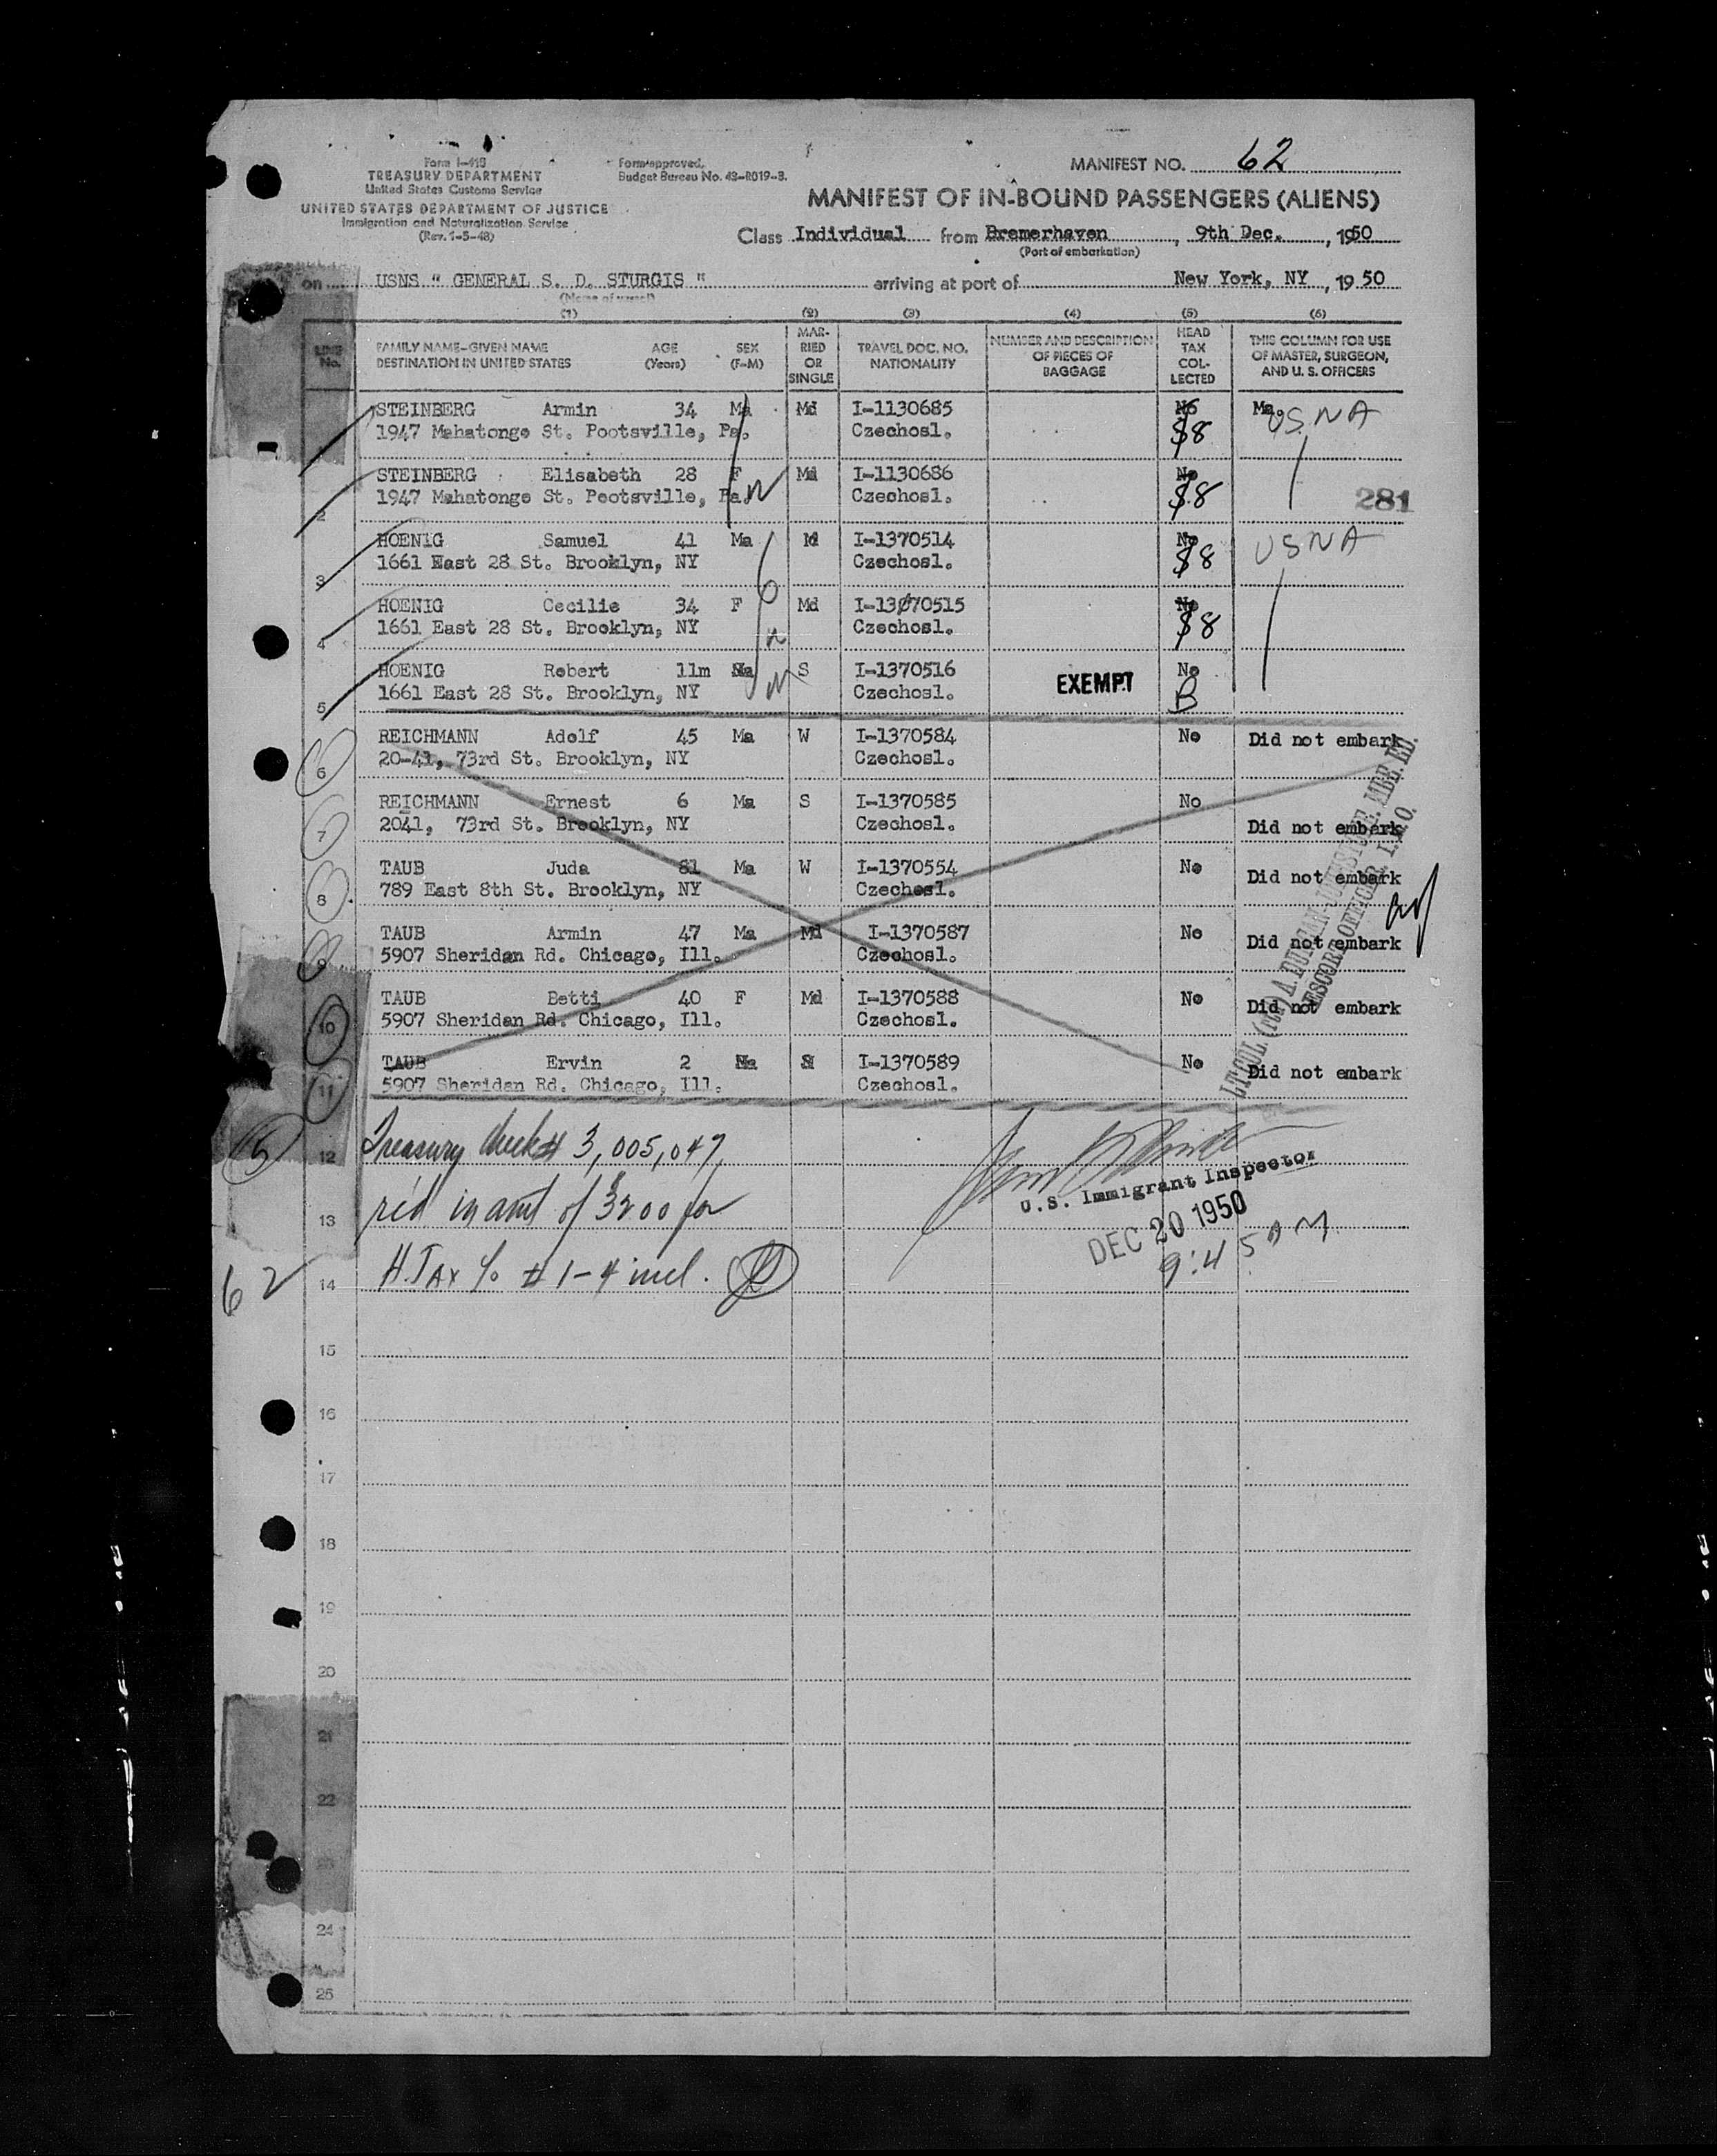 Form I-418
TREASURY DEPARTMENT
United States Customs Service
UNITED STATES DEPARTMENT OF JUSTICE
Immigration and Naturalization Service
(Rev. 1-5-48)
Form approved,
Budget Bureau No. 43-R019-3.
MANIFEST NO. 62
MANIFEST OF IN-BOUND PASSENGERS (ALIENS)
Class Individual from Bremerhaven, 9th Dec., 1950
(Port of embarkation)
on USNS " GENERAL S. D. STURGIS " arriving at port of New York, NY, 19 50
(Name of vessel)
(1) (2) (3) (4) (5) (6)
LINE No.
FAMILY NAME-GIVEN NAME AGE SEX
DESTINATION IN UNITED STATES (Years) (F-M)
MAR-
RIED
OR
SINGLE
TRAVEL DOC. NO.
NATIONALITY
NUMBER AND DESCRIPTION
OF PIECES OF
BAGGAGE
HEAD
TAX
COL-
LECTED
THIS COLUMN FOR USE
OF MASTER, SURGEON,
AND U. S. OFFICERS
STEINBERG Armin 34 Ma Md I-1130685 No Ma.
1947 Mahatongo St. Pootsville, Pa. Czechosl. $8 USNA
STEINBERG Elisabeth 28 F Md I-1130686 No
2 1947 Mahatongo St. Pootsville, Pa. N Czechosl. $8 281
HOENIG Samuel 41 Ma M I-1370514 No USNA
3 1661 East 28 St. Brooklyn, NY Czechosl. $8
HOENIG Cecilie 34 F Md I-1370515 No
4 1661 East 28 St. Brooklyn, NY Czechosl. $8
HOENIG Robert 11m Ma S I-1370516 No
5 1661 East 28 St. Brooklyn, NY Czechosl. EXEMPT B
REICHMANN Adolf 45 Ma W I-1370584 No Did not embark
6 20-41, 73rd St. Brooklyn, NY Czechosl.
REICHMANN Ernest 6 Ma S I-1370585 No
7 2041, 73rd St. Brooklyn, NY Czechosl. Did not embark
TAUB Juda 81 Ma W I-1370554 No Did not embark
8 789 East 8th St. Brooklyn, NY Czechosl.
TAUB Armin 47 Ma Md I-1370587 No Did not embark
9 5907 Sheridan Rd. Chicago, Ill. Czechosl.
TAUB Betti 40 F Md I-1370588 No Did not embark
10 5907 Sheridan Rd. Chicago, Ill. Czechosl.
TAUB Ervin 2 Ma S I-1370589 No Did not embark
11 5907 Sheridan Rd. Chicago, Ill. Czechosl.
ESCORT OFFICER I.R.O.
5
12 Treasury Check # 3,005,047,
13 rec'd in amt of $3200 for
62
14 H.Tax % #1-4 incl.
U.S. Immigrant Inspector
DEC 20 1950
9:45 AM
15
16
17
18
19
20
21
22
23
24
25